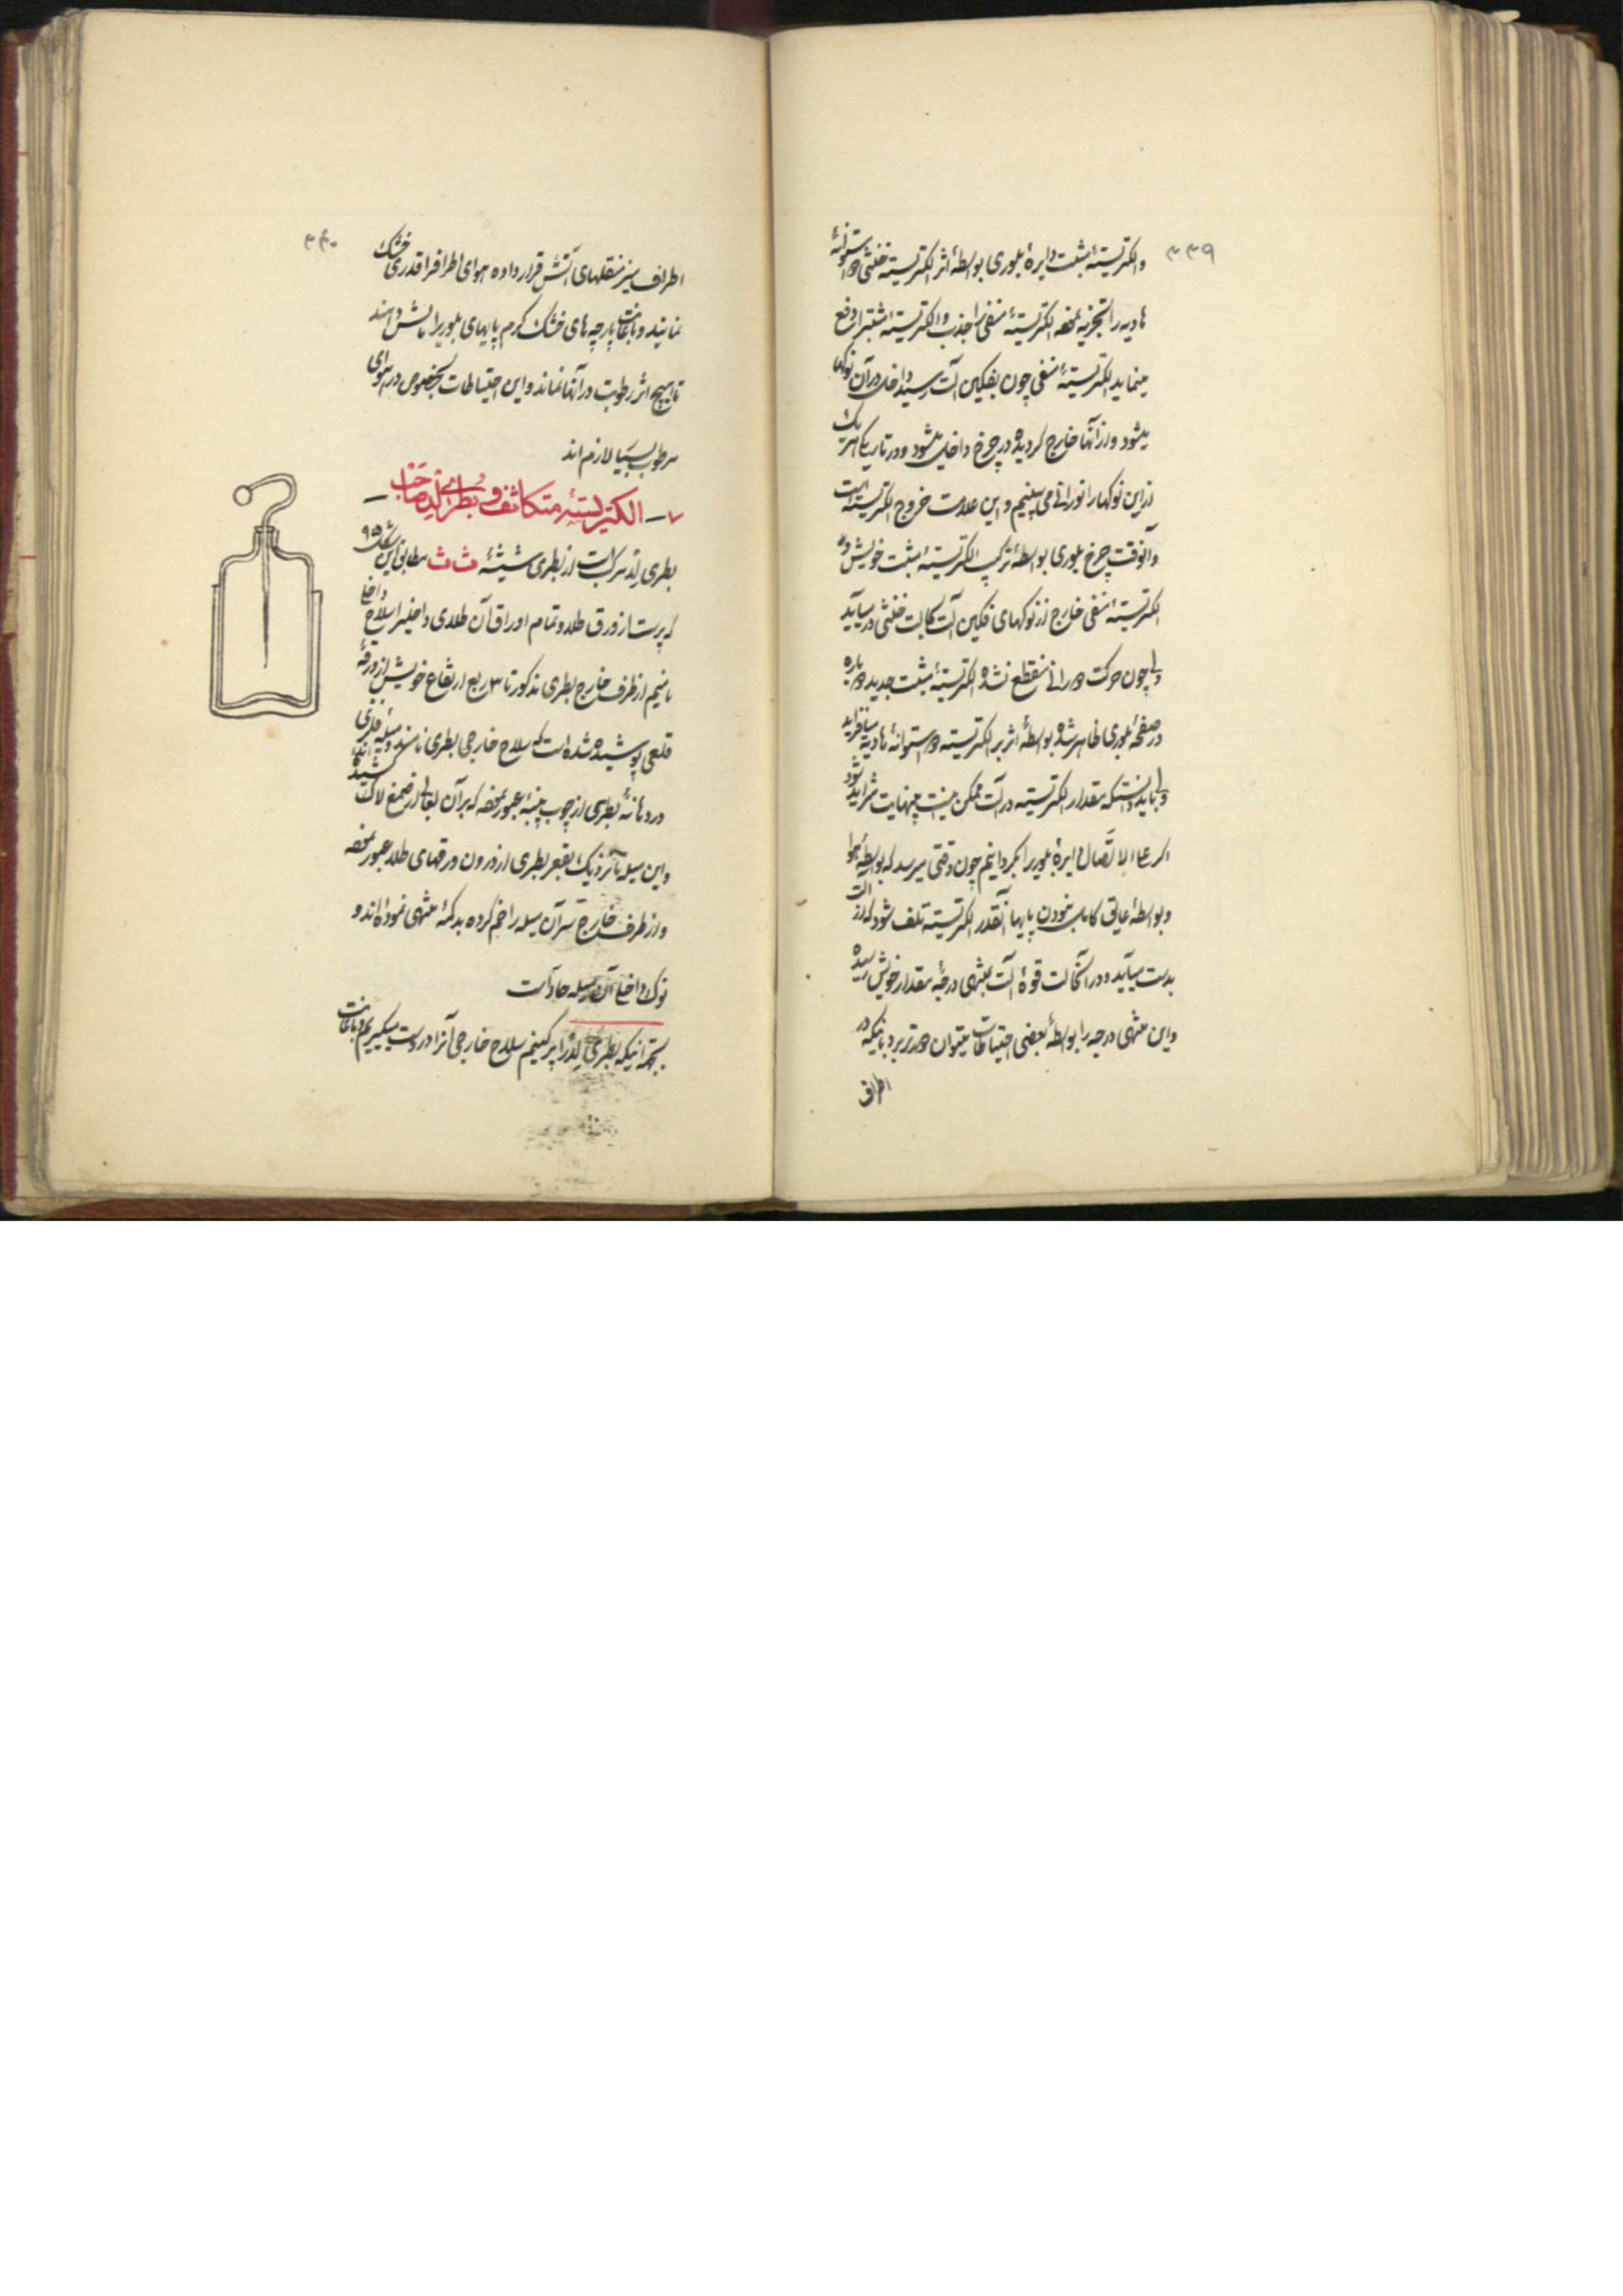 ۳۳۹
والکتریسیتهٔ مثبت دایرهٔ بلوری بواسطهٔ اثر الکتریسیته خنثی دو استوانهٔ
هادیه را تجزیه نموده الکتریسیتهٔ منفی را جذب والکتریسیته مثبت را دفع
مینماید الکتریسیتهٔ منفی چون بفکین آلت رسید داخل در آن نوکها
میشود و از آنها خارج گردیده در چرخ داخل میشود و در تاریکی هر یک
از این نوکها را نورانی می بینیم و این علامت خروج الکتریسیته است
و آنوقت چرخ بلوری بواسطهٔ ترکیب الکتریسیته مثبت خویش و
الکتریسیتهٔ منفی خارج از نوکهای فکین آلت بحالت خنثی در میآید
ولی چون حرکت دورانی منقطع نشده الکتریسیتهٔ مثبت جدید دوباره
در صفحهٔ بلوری ظاهر شده بواسطهٔ اثر بر الکتریسیته دو استوانهٔ هادیه میافزاید
ولی باید دانست که مقدار الکتریسیته در آلت ممکن نیست بینهایت متزاید شود
اگر علی الاتصال دایرهٔ بلور را بگردانیم چون وقتی میرسد که بواسطهٔ هوا
و بواسطهٔ عایق کامل نبودن پایها آنقدر الکتریسیته تلف شود که از آلت
بدست میآید و در آنحالت قوهٔ آلت بمنتهی درجهٔ مقدار خویش رسیده
و این منتهی درجه را بواسطهٔ بعضی احتیاطات میتوان دورتر برد باینکه در
اطراف
۳۴۰
اطراف میز منقلهای آتش قرار داده هوای اطراف را قدری خشک
نمایند و باعانت پارچه های خشک گرم پایهای بلور را مالش دهند
تا هیچ اثر رطوبت در آنها نماند و این احتیاطات بخصوص در هوای
مرطوب بسیار لازم اند
۷ـ الکتریسیتهٔ متکاثف و بطری لید صاحب ـ
بطری لید مرکب است از بطری شیشهٔ ث ث مطابق این شکل ۹۵
که پر است از ورق طلا و تمام اوراق آن طلای داخلی را سلاح داخلی
نامیم از طرف خارج بطری مذکور تا ۳ ربع ارتفاع خویش از ورقهٔ
قلعی پوشیده شده است که سلاح خارجی بطری نامند و میلهٔ فلزی
در دهانهٔ بطری از چوب پنبهٔ عبور نموده که بر آن لعابی از صمغ لاک کشیده اند
و این میله تا نزدیک بقعر بطری از درون ورقهای طلا عبور نموده
و از طرف خارج سر آن میله را خم کرده بدکمهٔ منتهی نموده اند و
نوک داخلی آن میله حاد است
بجهة اینکه بطری لید را پر کنیم سلاح خارجی آنرا در دست میگیریم و باعانت